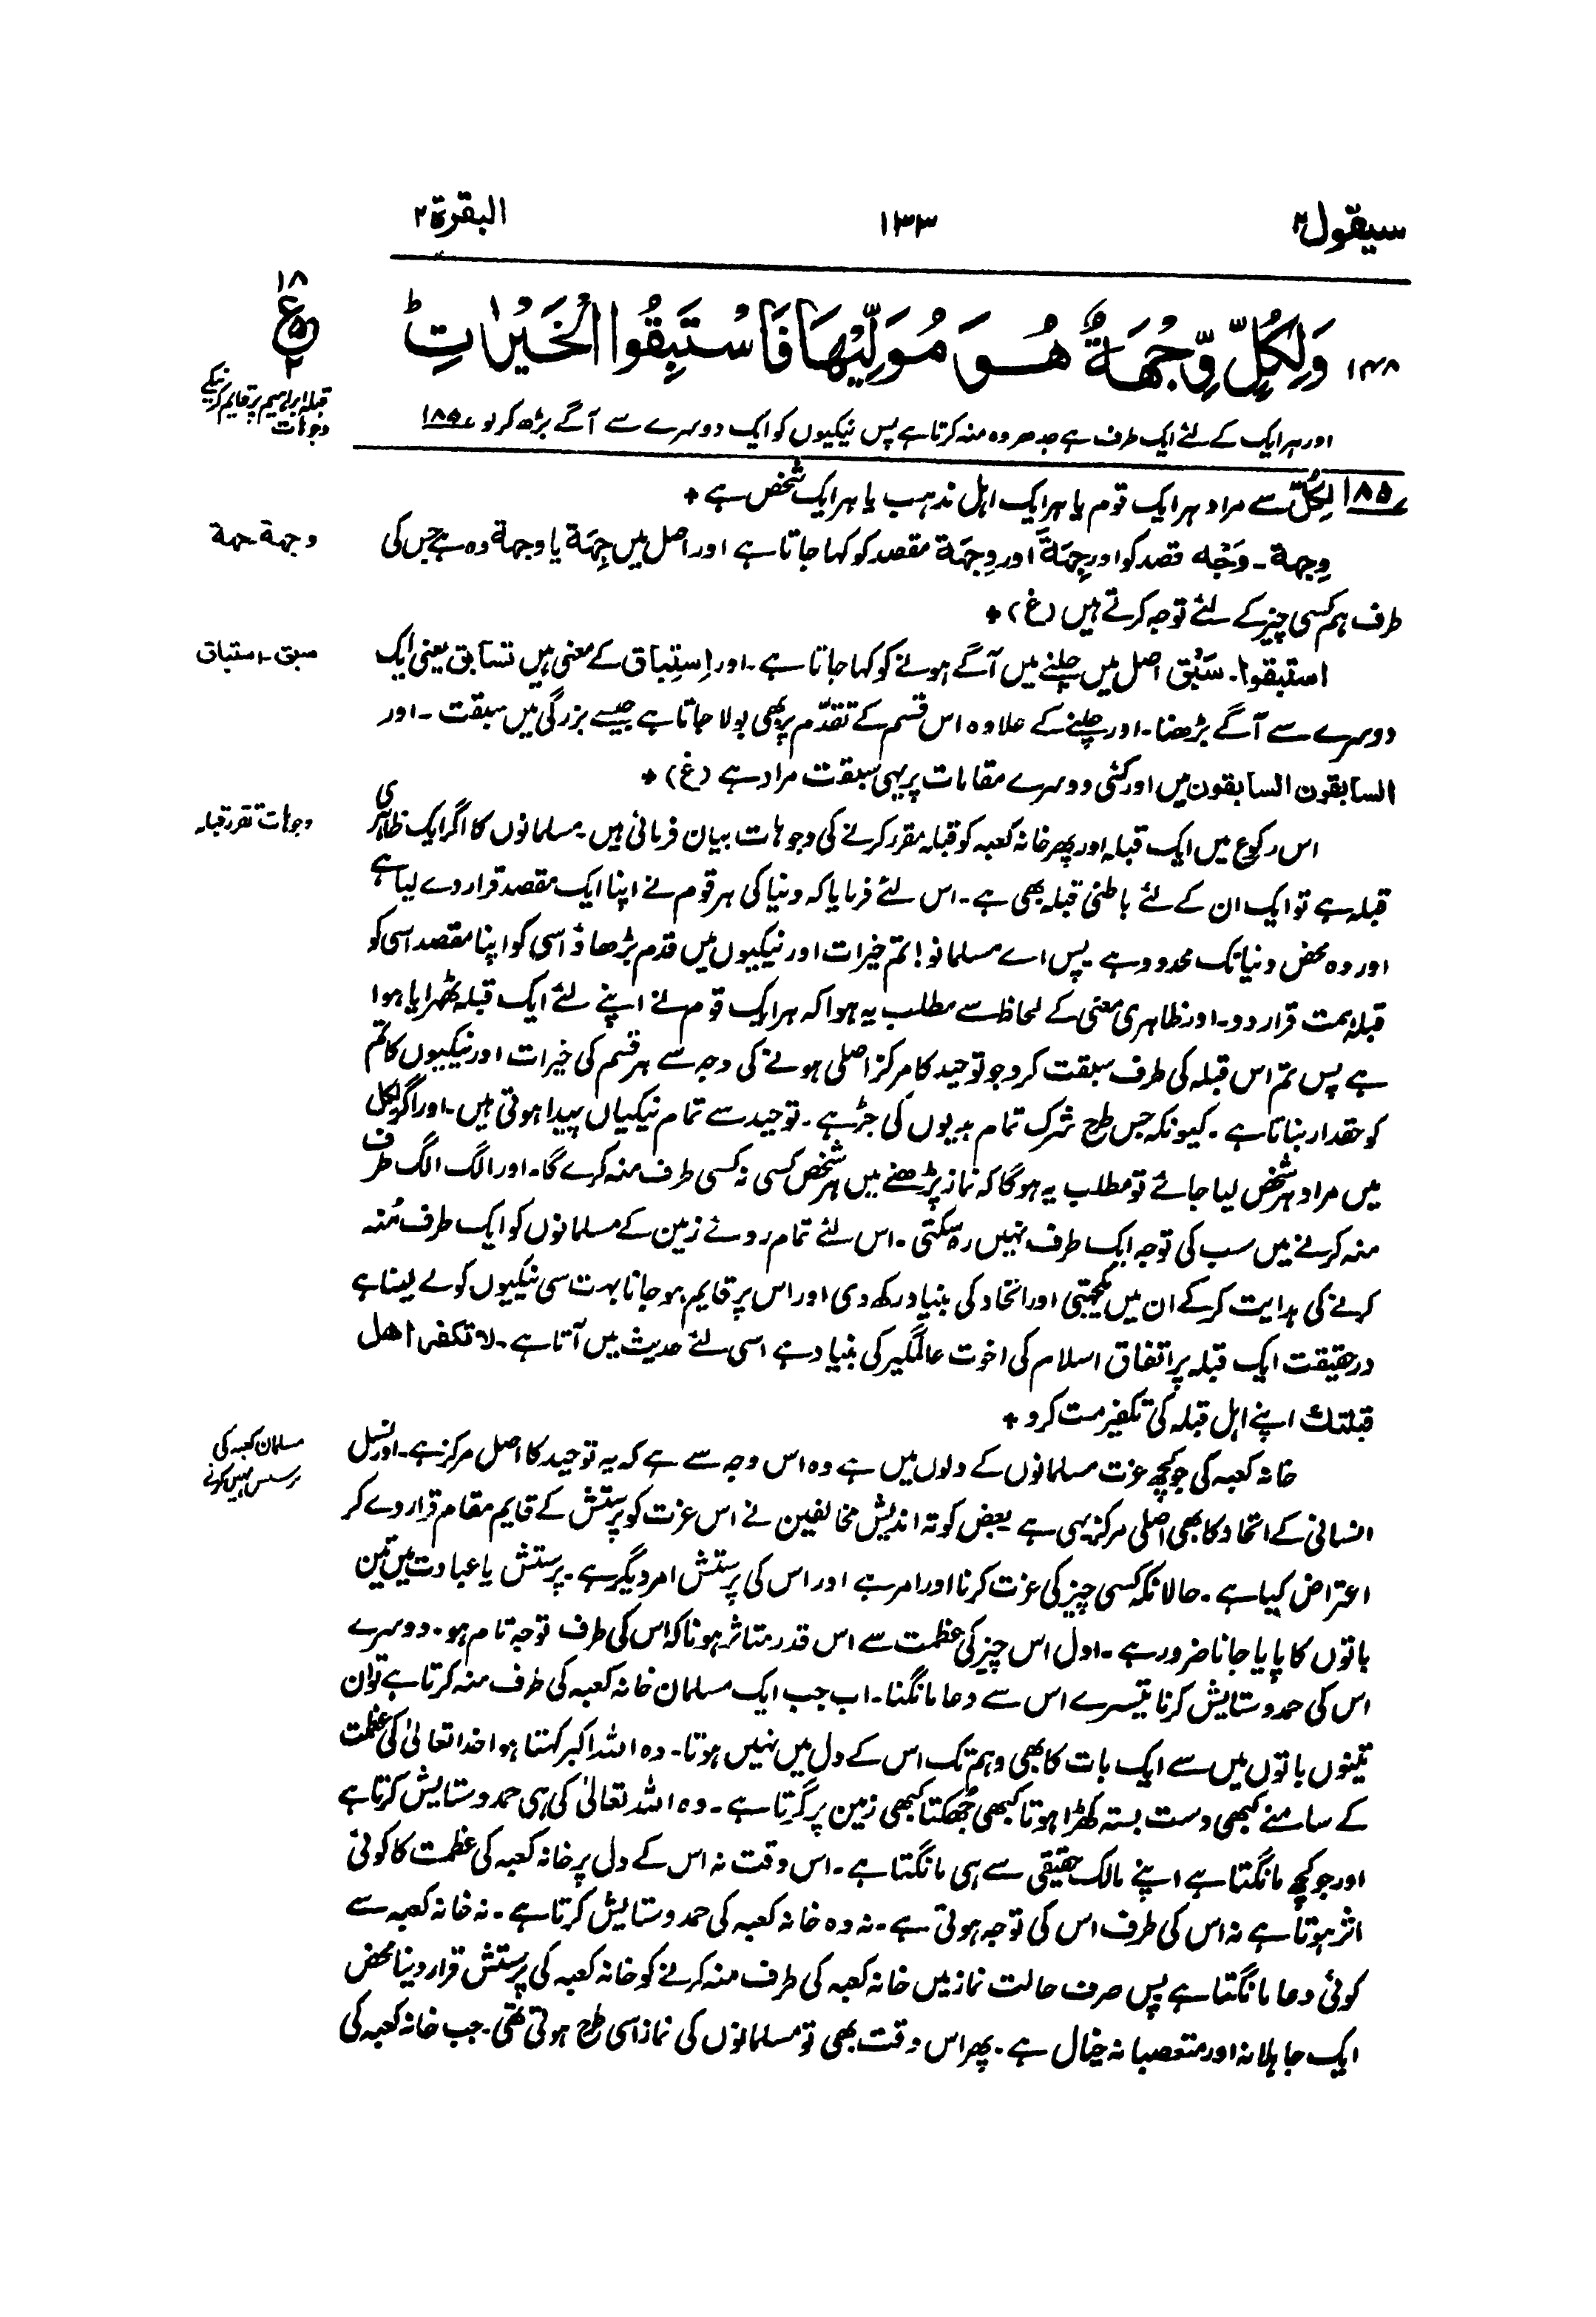 سیقول۲
۱۳۳
البقرة۲
۱۸
ع
۲
۱۴۸ وَلِكُلٍّ وِّجْهَةٌ هُوَ مُوَلِّيْهَا فَاسْتَبِقُوا الْخَيْرٰتِ ؕ
اور ہر ایک کے لئے ایک طرف ہے جدھر وہ منہ کرتا ہے پس نیکیوں کو ایک دوسرے سے آگے بڑھ کر لو ۱۸۵
قبلہ ابراہیم پر قایم کرنیکے
وجوہات
۱۸۵ لِكُلٍّ سے مراد ہر ایک قوم یا ہر ایک اہل مذہب یا ہر ایک شخص ہے ٭
وجهة جهة
وِجهة۔ وَجْه قصد کو اور جِهَة اور وِجهَة مقصد کو کہا جاتا ہے اور اصل میں جِهَة یا وجهة وہ ہے جس کی
طرف ہم کسی چیز کے لئے توجہ کرتے ہیں (غ) ٭
سبق۔ استباق
استبقوا۔ سَبْق اصل میں چلنے میں آگے ہونے کو کہا جاتا ہے۔ اور اِستِباق کے معنی ہیں تسابق یعنی ایک
دوسرے سے آگے بڑھنا۔ اور چلنے کے علاوہ اس قسم کے تقدّم پر بھی بولا جاتا ہے جیسے بزرگی میں سبقت۔ اور
السابقون السابقون میں اور کئی دوسرے مقامات پر یہی سبقت مراد ہے (غ) ٭
وجوہات تقرر قبلہ
اس رکوع میں ایک قبلہ اور پھر خانہ کعبہ کو قبلہ مقرر کرنے کی وجوہات بیان فرمائی ہیں۔ مسلمانوں کا اگر ایک ظاہری
قبلہ ہے تو ایک ان کے لئے باطنی قبلہ بھی ہے۔ اس لئے فرمایا کہ دنیا کی ہر قوم نے اپنا ایک مقصد قرار دے لیا ہے
اور وہ محض دنیا تک محدود ہے پس اے مسلمانو! تم خیرات اور نیکیوں میں قدم بڑھاؤ اسی کو اپنا مقصد اسی کو
قبلہ ہمت قرار دو۔ اور ظاہری معنی کے لحاظ سے مطلب یہ ہوا کہ ہر ایک قوم نے اپنے لئے ایک قبلہ ٹھہرایا ہوا
ہے پس تم اس قبلہ کی طرف سبقت کرو جو توحید کا مرکز اصلی ہونے کی وجہ سے ہر قسم کی خیرات اور نیکیوں کا تم
کو حقدار بناتا ہے۔ کیونکہ جس طرح شرک تمام بدیوں کی جڑ ہے۔ توحید سے تمام نیکیاں پیدا ہوتی ہیں۔ اور اگر لِكل
میں مراد ہر شخص لیا جائے تو مطلب یہ ہوگا کہ نماز پڑھنے میں ہر شخص کسی نہ کسی طرف منہ کرے گا۔ اور الگ الگ طرف
منہ کرنے میں سب کی توجہ ایک طرف نہیں رہ سکتی۔ اس لئے تمام روئے زمین کے مسلمانوں کو ایک طرف مُنہ
کرنے کی ہدایت کر کے ان میں یکجہتی اور اتحاد کی بنیاد رکھ دی اور اس پر قایم ہو جانا بہت سی نیکیوں کو لے لینا ہے
درحقیقت ایک قبلہ پر اتفاق اسلام کی اخوت عالمگیر کی بنیاد ہے اسی لئے حدیث میں آتا ہے۔ لا تکفر اهل
قبلتك اپنے اہل قبلہ کی تکفیر مت کرو ٭
مسلمان کعبہ کی
پرستش نہیں کرتے
خانہ کعبہ کی جو کچھ عزت مسلمانوں کے دلوں میں ہے وہ اس وجہ سے ہے کہ یہ توحید کا اصل مرکز ہے۔ اور نسل
انسانی کے اتحاد کا بھی اصلی مرکز یہی ہے بعض کوتہ اندیش مخالفین نے اس عزت کو پرستش کے قایم مقام قرار دے کر
اعتراض کیا ہے۔ حالانکہ کسی چیز کی عزت کرنا اور امر ہے اور اس کی پرستش امر دیگر ہے۔ پرستش یا عبادت میں تین
باتوں کا پایا جانا ضرور ہے۔ اول اس چیز کی عظمت سے اس قدر متاثر ہونا کہ اس کی طرف توجہ تام ہو۔ دوسرے
اس کی حمد و ستایش کرنا تیسرے اس سے دعا مانگنا۔ اب جب ایک مسلمان خانہ کعبہ کی طرف منہ کرتا ہے تو ان
تینوں باتوں میں سے ایک بات کا بھی وہم تک اس کے دل میں نہیں ہوتا۔ وہ اللہ اکبر کہتا ہوا خدا تعالیٰ کی عظمت
کے سامنے کبھی دست بستہ کھڑا ہوتا کبھی جُھکتا کبھی زمین پر گرتا ہے۔ وہ اللہ تعالیٰ کی ہی حمد و ستایش کرتا ہے
اور جو کچھ مانگتا ہے اپنے مالک حقیقی سے ہی مانگتا ہے۔ اس وقت نہ اس کے دل پر خانہ کعبہ کی عظمت کا کوئی
اثر ہوتا ہے نہ اس کی طرف اس کی توجہ ہوتی ہے۔ نہ وہ خانہ کعبہ کی حمد و ستایش کرتا ہے۔ نہ خانہ کعبہ سے
کوئی دعا مانگتا ہے پس صرف حالت نماز میں خانہ کعبہ کی طرف منہ کرنے کو خانہ کعبہ کی پرستش قرار دینا محض
ایک جاہلانہ اور متعصبانہ خیال ہے۔ پھر اس وقت بھی تو مسلمانوں کی نماز اسی طرح ہوتی تھی۔ جب خانہ کعبہ کی